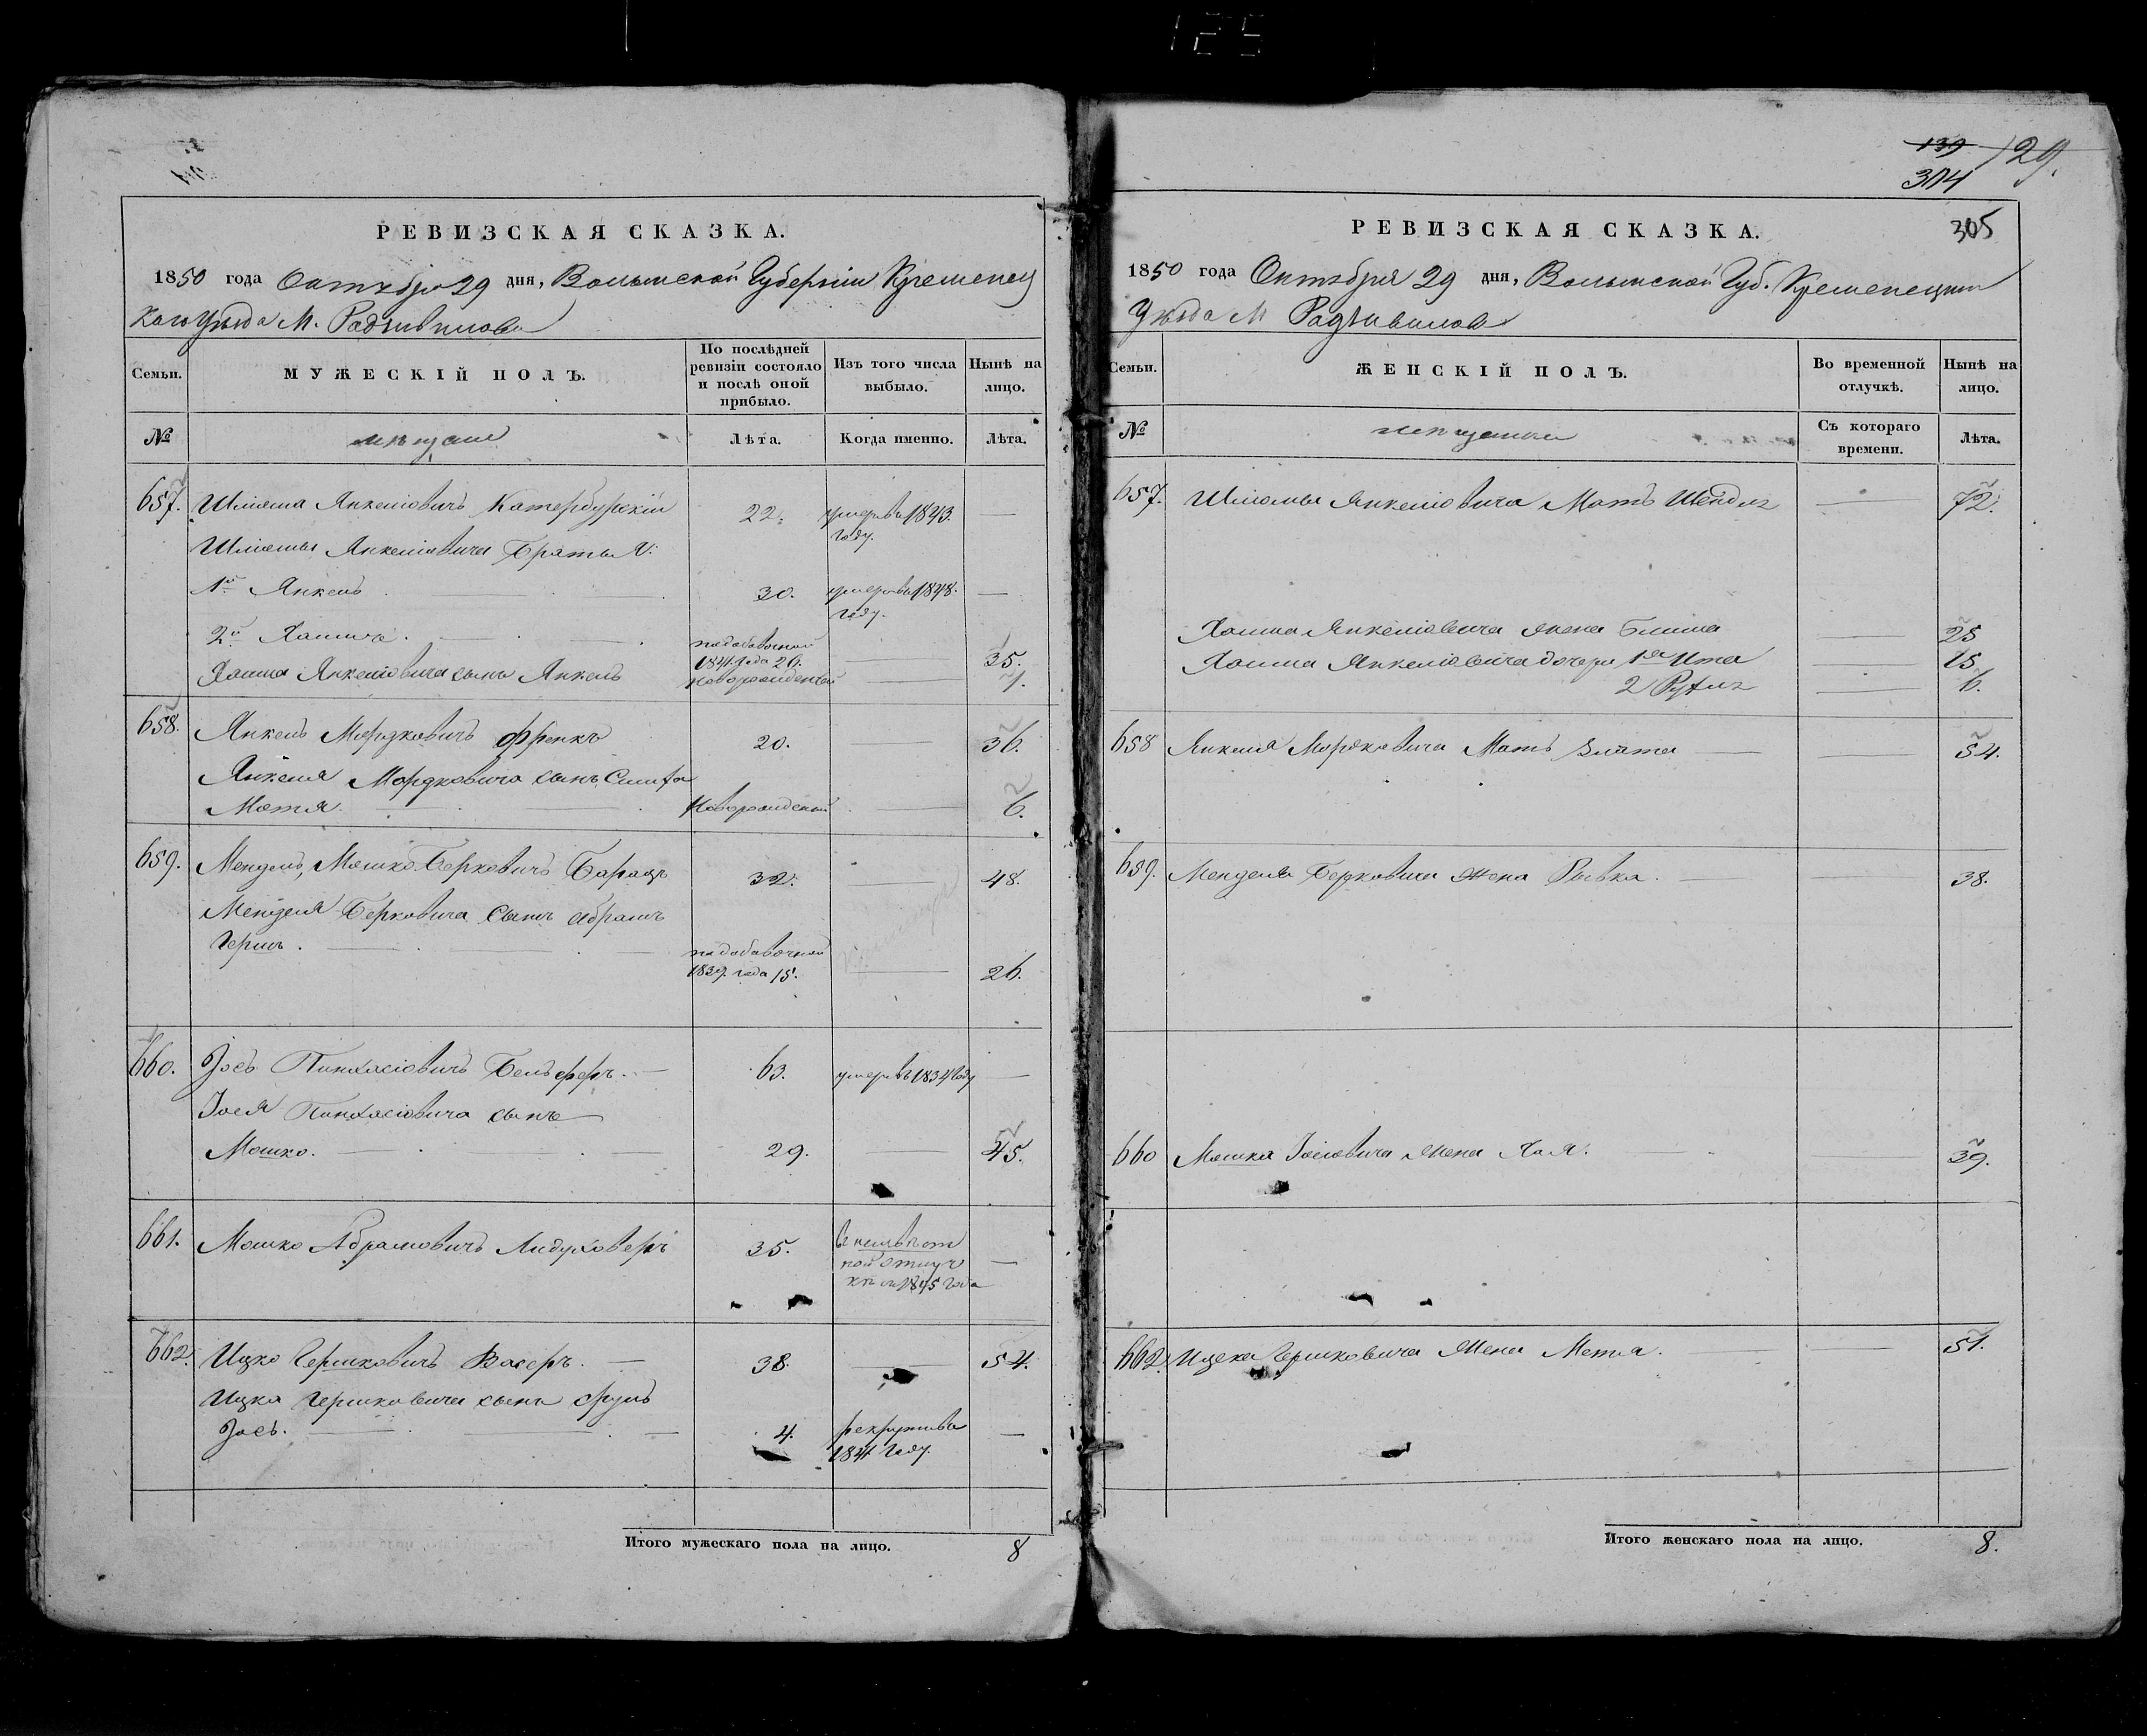 125
РЕВИЗСКАЯ СКАЗКА.
1850 года Октября 29 дня, Волынской Губерніи Кременец
каго Уѣзда М. Радзивилова
Семьи.
МУЖЕСКІЙ ПОЛЪ.
По послѣдней ревизіи состояло и послѣ оной прибыло.
Изъ того числа выбыло.
Нынѣ на лицо.
№
мѣщане
Лѣта.
Когда именно.
Лѣта.
657. Шлиома Янкеліовичъ Катербурскій 22. умеръ въ 1843. году. —
Шлиомы Янкеліовича Братья:
1й Янкель 30. умеръ въ 1848. году. —
2й Хаимъ. по добавочной 1841 года 26. — 35.
Хаима Янкеліовича сынъ Янкель новорожденный — 7.
658. Янкель Мордковичъ Френкъ 20. — 36.
Янкеля Мордковича сынъ
Мотя. новорожденный — 6.
659. Мендель, Мошко Берковичъ 32. — 48.
Менделя Берковича сынъ Абрамъ
Гершъ. по добавочной 1839. года 15. — 26.
660. Іось Пинхасіовичъ Бельферъ. 63. умеръ въ 1834 году —
Іося Пинхасіовича сынъ
Мошко. 29. — 45.
661. Мошко Абрамовичъ Лидуховеръ 35. в неизвѣст
ной отлуч
кѣ съ 1845 года —
662. Ицко Гершковичъ Васеръ. 38. — 54.
Ицка Гершковича сынъ Сруль
Іось. 4. рекрутъ въ 1841 году. —
Итого мужескаго пола на лицо. 8
139 129.
304
305
РЕВИЗСКАЯ СКАЗКА.
1850 года Октября 29 дня, Волынской Губ. Кременецкаго
Уѣзда М Радзивилова
Семьи.
ЖЕНСКІЙ ПОЛЪ.
Во временной отлучкѣ.
Нынѣ на лицо.
№
мѣщанки
Съ котораго времени.
Лѣта.
657. Шлиомы Янкеліовича Мать Шейндля — 72.
Хаима Янкеліовича жена Блима — 25
Хаима Янкеліовича дочери 1я Ита — 15
2 Рухля — 6.
658 Янкеля Мордковича Мать Злата — 54.
659. Менделя Берковича жена Рывка. — 38.
660 Мошка Іосіовича жена Хая. — 39.
662. Ицека Гершковича жена — 51.
Итого женскаго пола на лицо. 8.